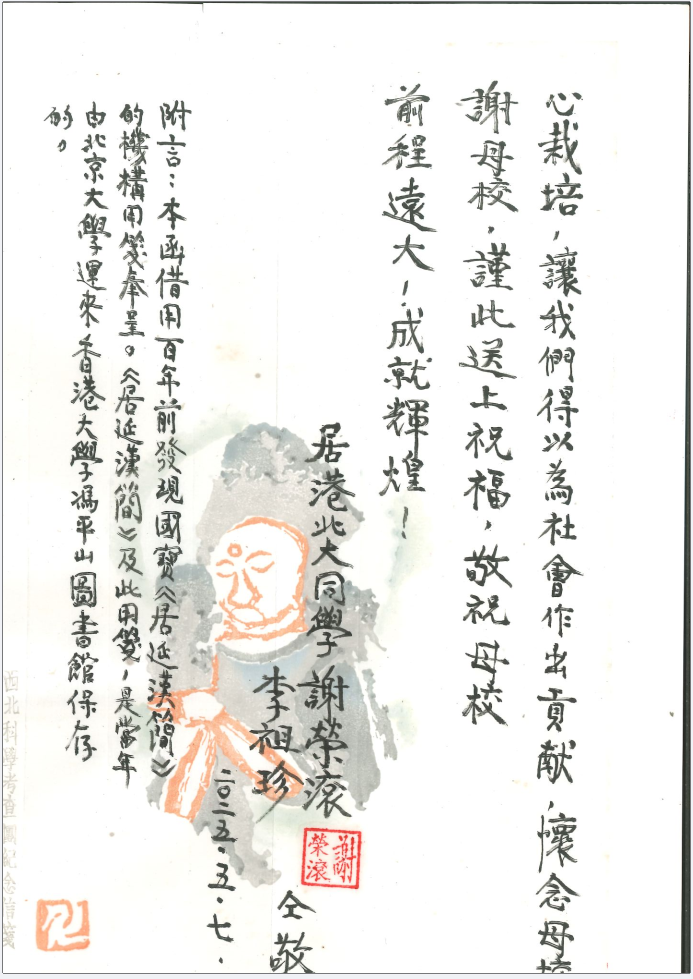 心栽培，讓我們得以為社會作出貢献，懷念母校
謝母校，謹此送上祝福，敬祝母校
前程遠大！成就輝煌！
居港北大同學 謝榮滾
李祖珍
仝敬
謝榮滾
二〇二五．五．七．
附言：本函借用百年前發現國寶《居延漢簡》
的機構用箋奉呈。《居延漢簡》及此用箋，是當年
由北京大學運來香港大學馮平山圖書館保存
的。
西北科學考查團紀念信箋